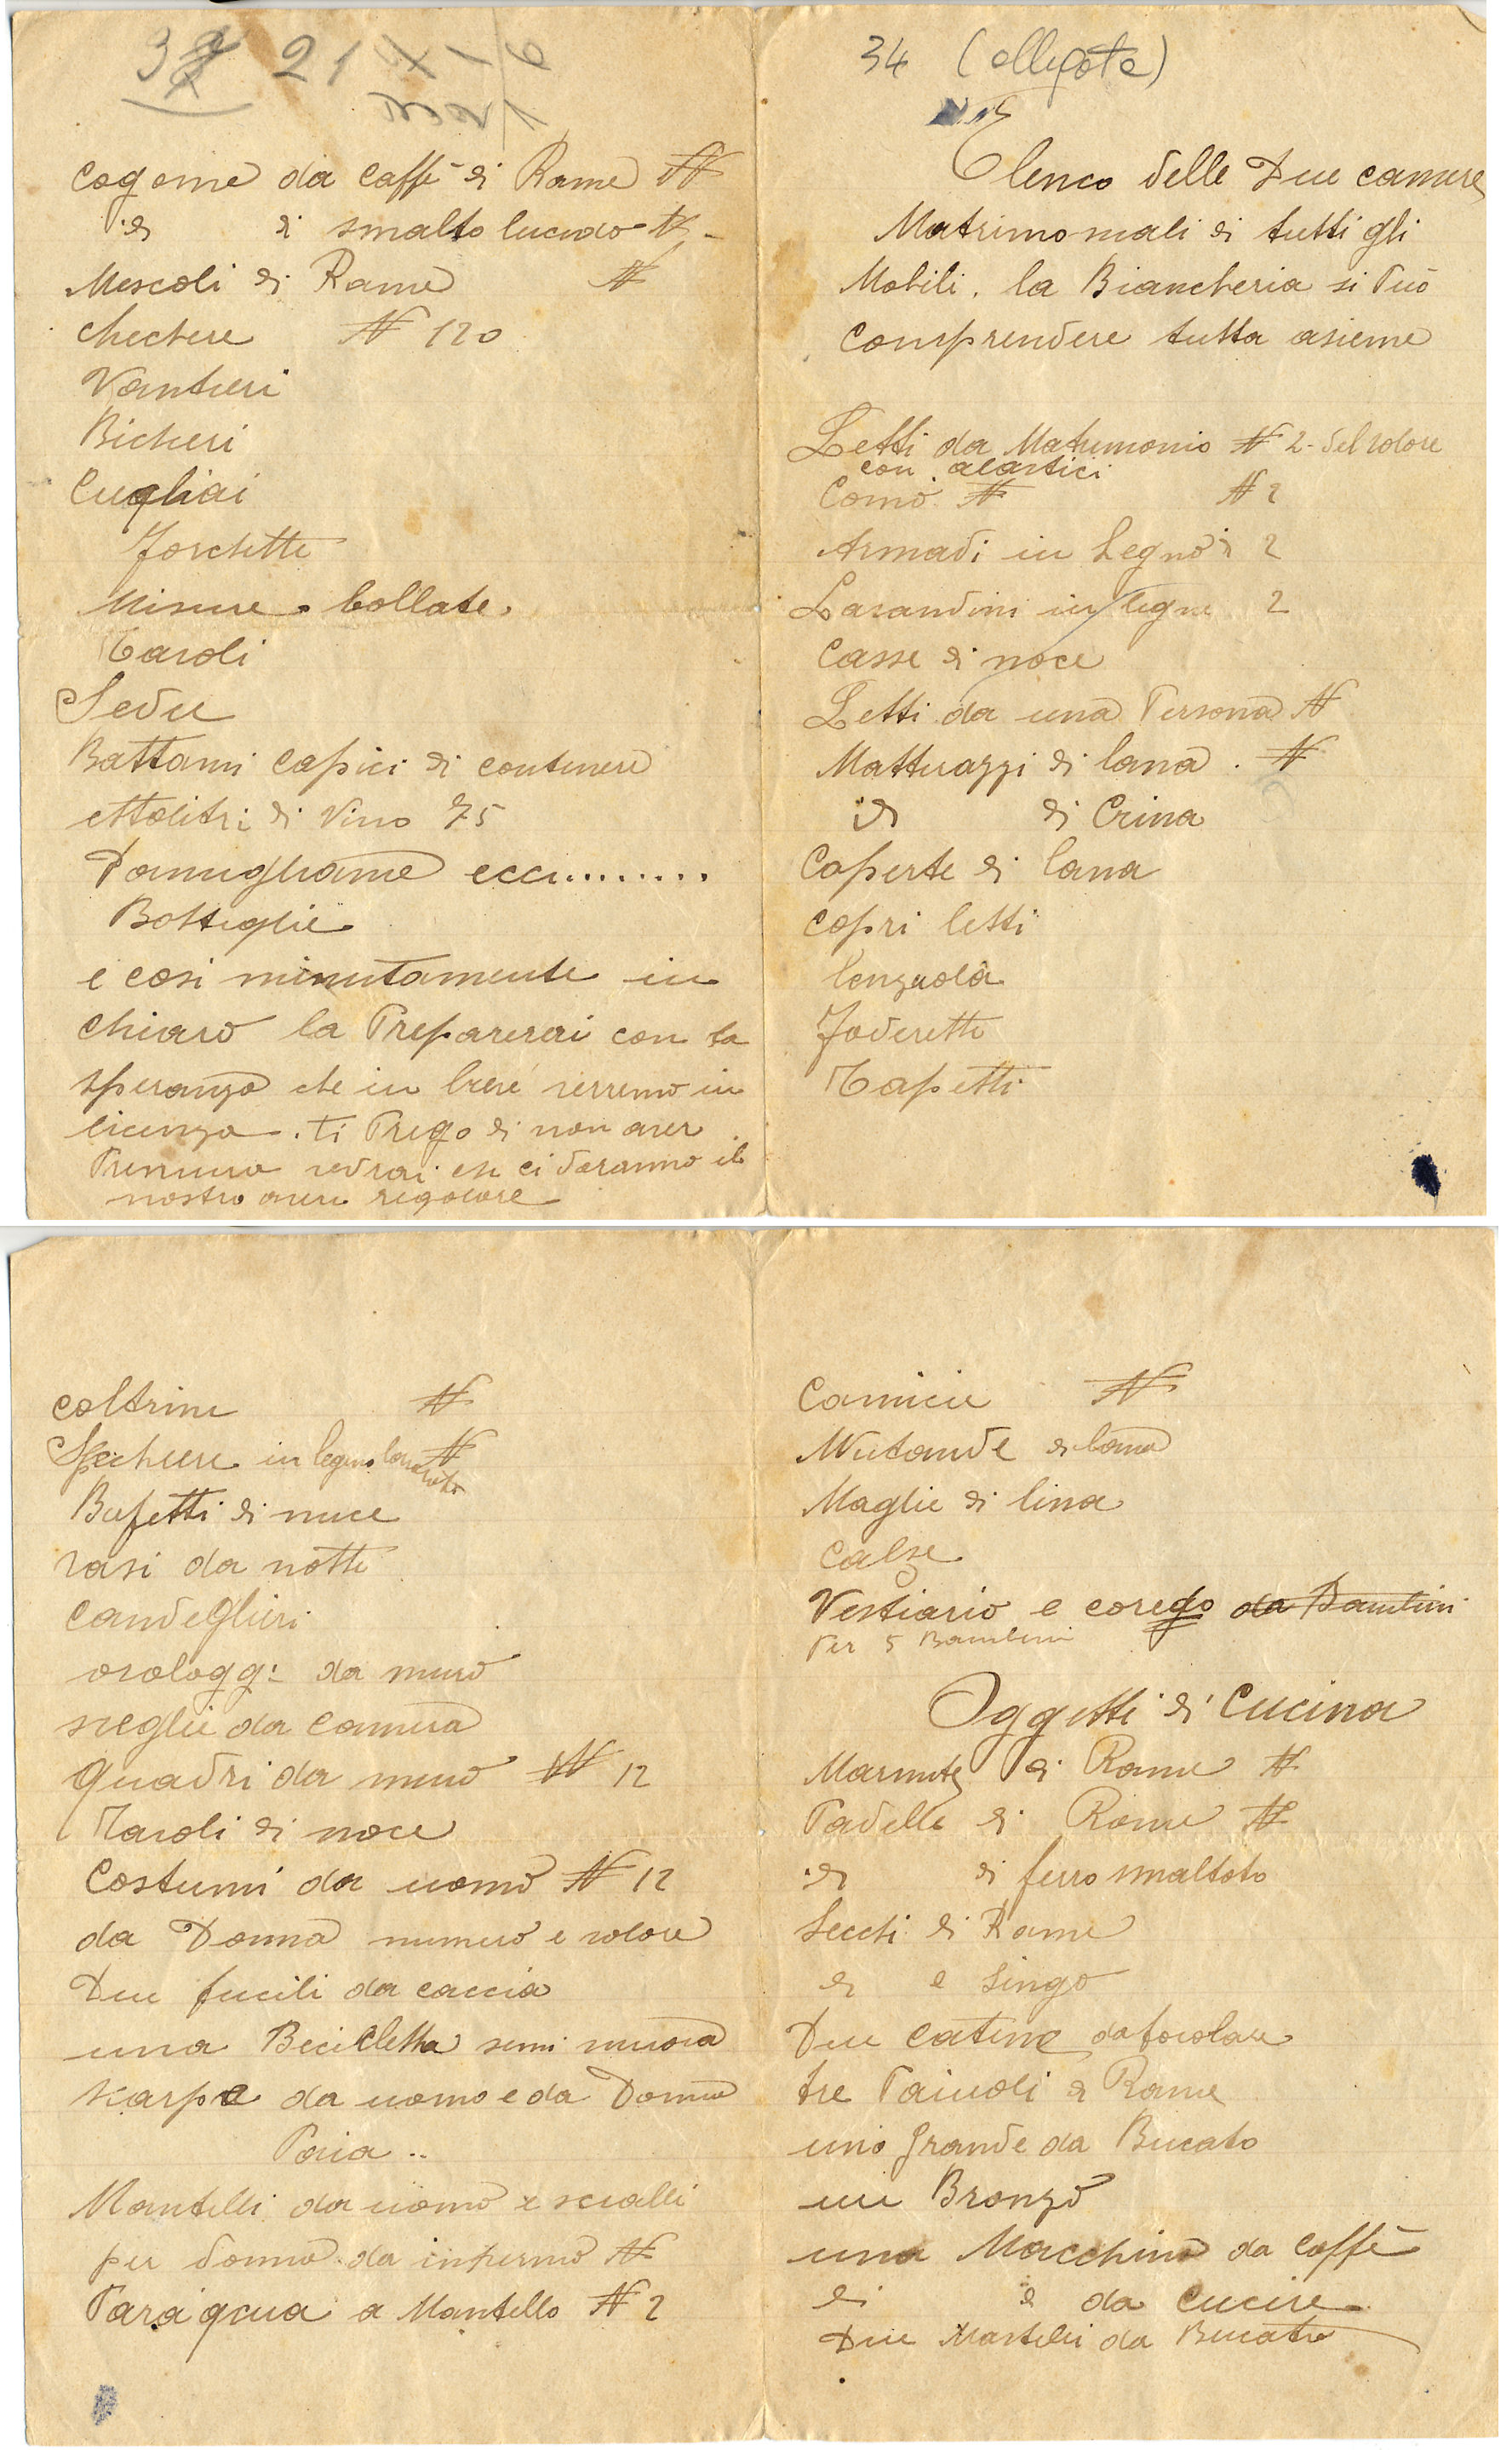 34 (allegato)
Elenco delle Due camere
Matrimomiali di tutti gli
Mobili. la Biancheria si Può
comprendere tutta asieme
Letti da Matrimonio N 2 - del valore
con elastici
Comò N N 2
Armadi in Legno di 2
Lavandini in legno 2
Casse di noce
Letti da una Persona N
Matterazzi di lana . N
id di Crina
Coperte di lana
Copri letti
lenzuola
Foderette
Tapetti
coltrine N
Spechiere in legno lavorato N
Bufetti di nuce
vasi da notte
Candeglieri
orologgi da muro
sveglie da camera
Quadri da muro N 12
Tavoli di noce
Costumi da uomo N 12
da Donna numero e valore
Due fucili da caccia
una Becicletta semi nuova
scarpe da uomo e da Donna
Paia ..
Mantelli da uomo e scialli
per donna da inverno N
Paraqcua a Mantello N 2
Camicie N
Mutande di lana
Maglie di lina
Calze
Vestiario e coredo da Bambini
Per 5 Bambini
Oggetti di Cucina
Marmite di Rame N
Padelle di Rame N
id di ferro smaltato
Secchi di Rame
di e Singo
Due catine da focolare
tre Paiuoli di Rame
uno Grande da Bucato
un Bronzo
una Macchina da Caffè
di e da cucire
Due Mastelli da Bucato
32 21
cogome da caffè di Rame N
id di smalto lucido N -
Mescoli di Rame N
Chechere N 120
Vantieri
Bicheri
Cugliai
Forchette
Misure bollate.
Tavoli
Sedie
Bottami capici di contenere
ettolitri di Vino 75
Damigliame ecci.........
Bottiglie
e cosi minutamente in
chiaro la Preparerai con la
speranza che in breve verremo in
licenza. ti Prego di non aver
Premura vedrai che ci daranno il
nostro avere regolare